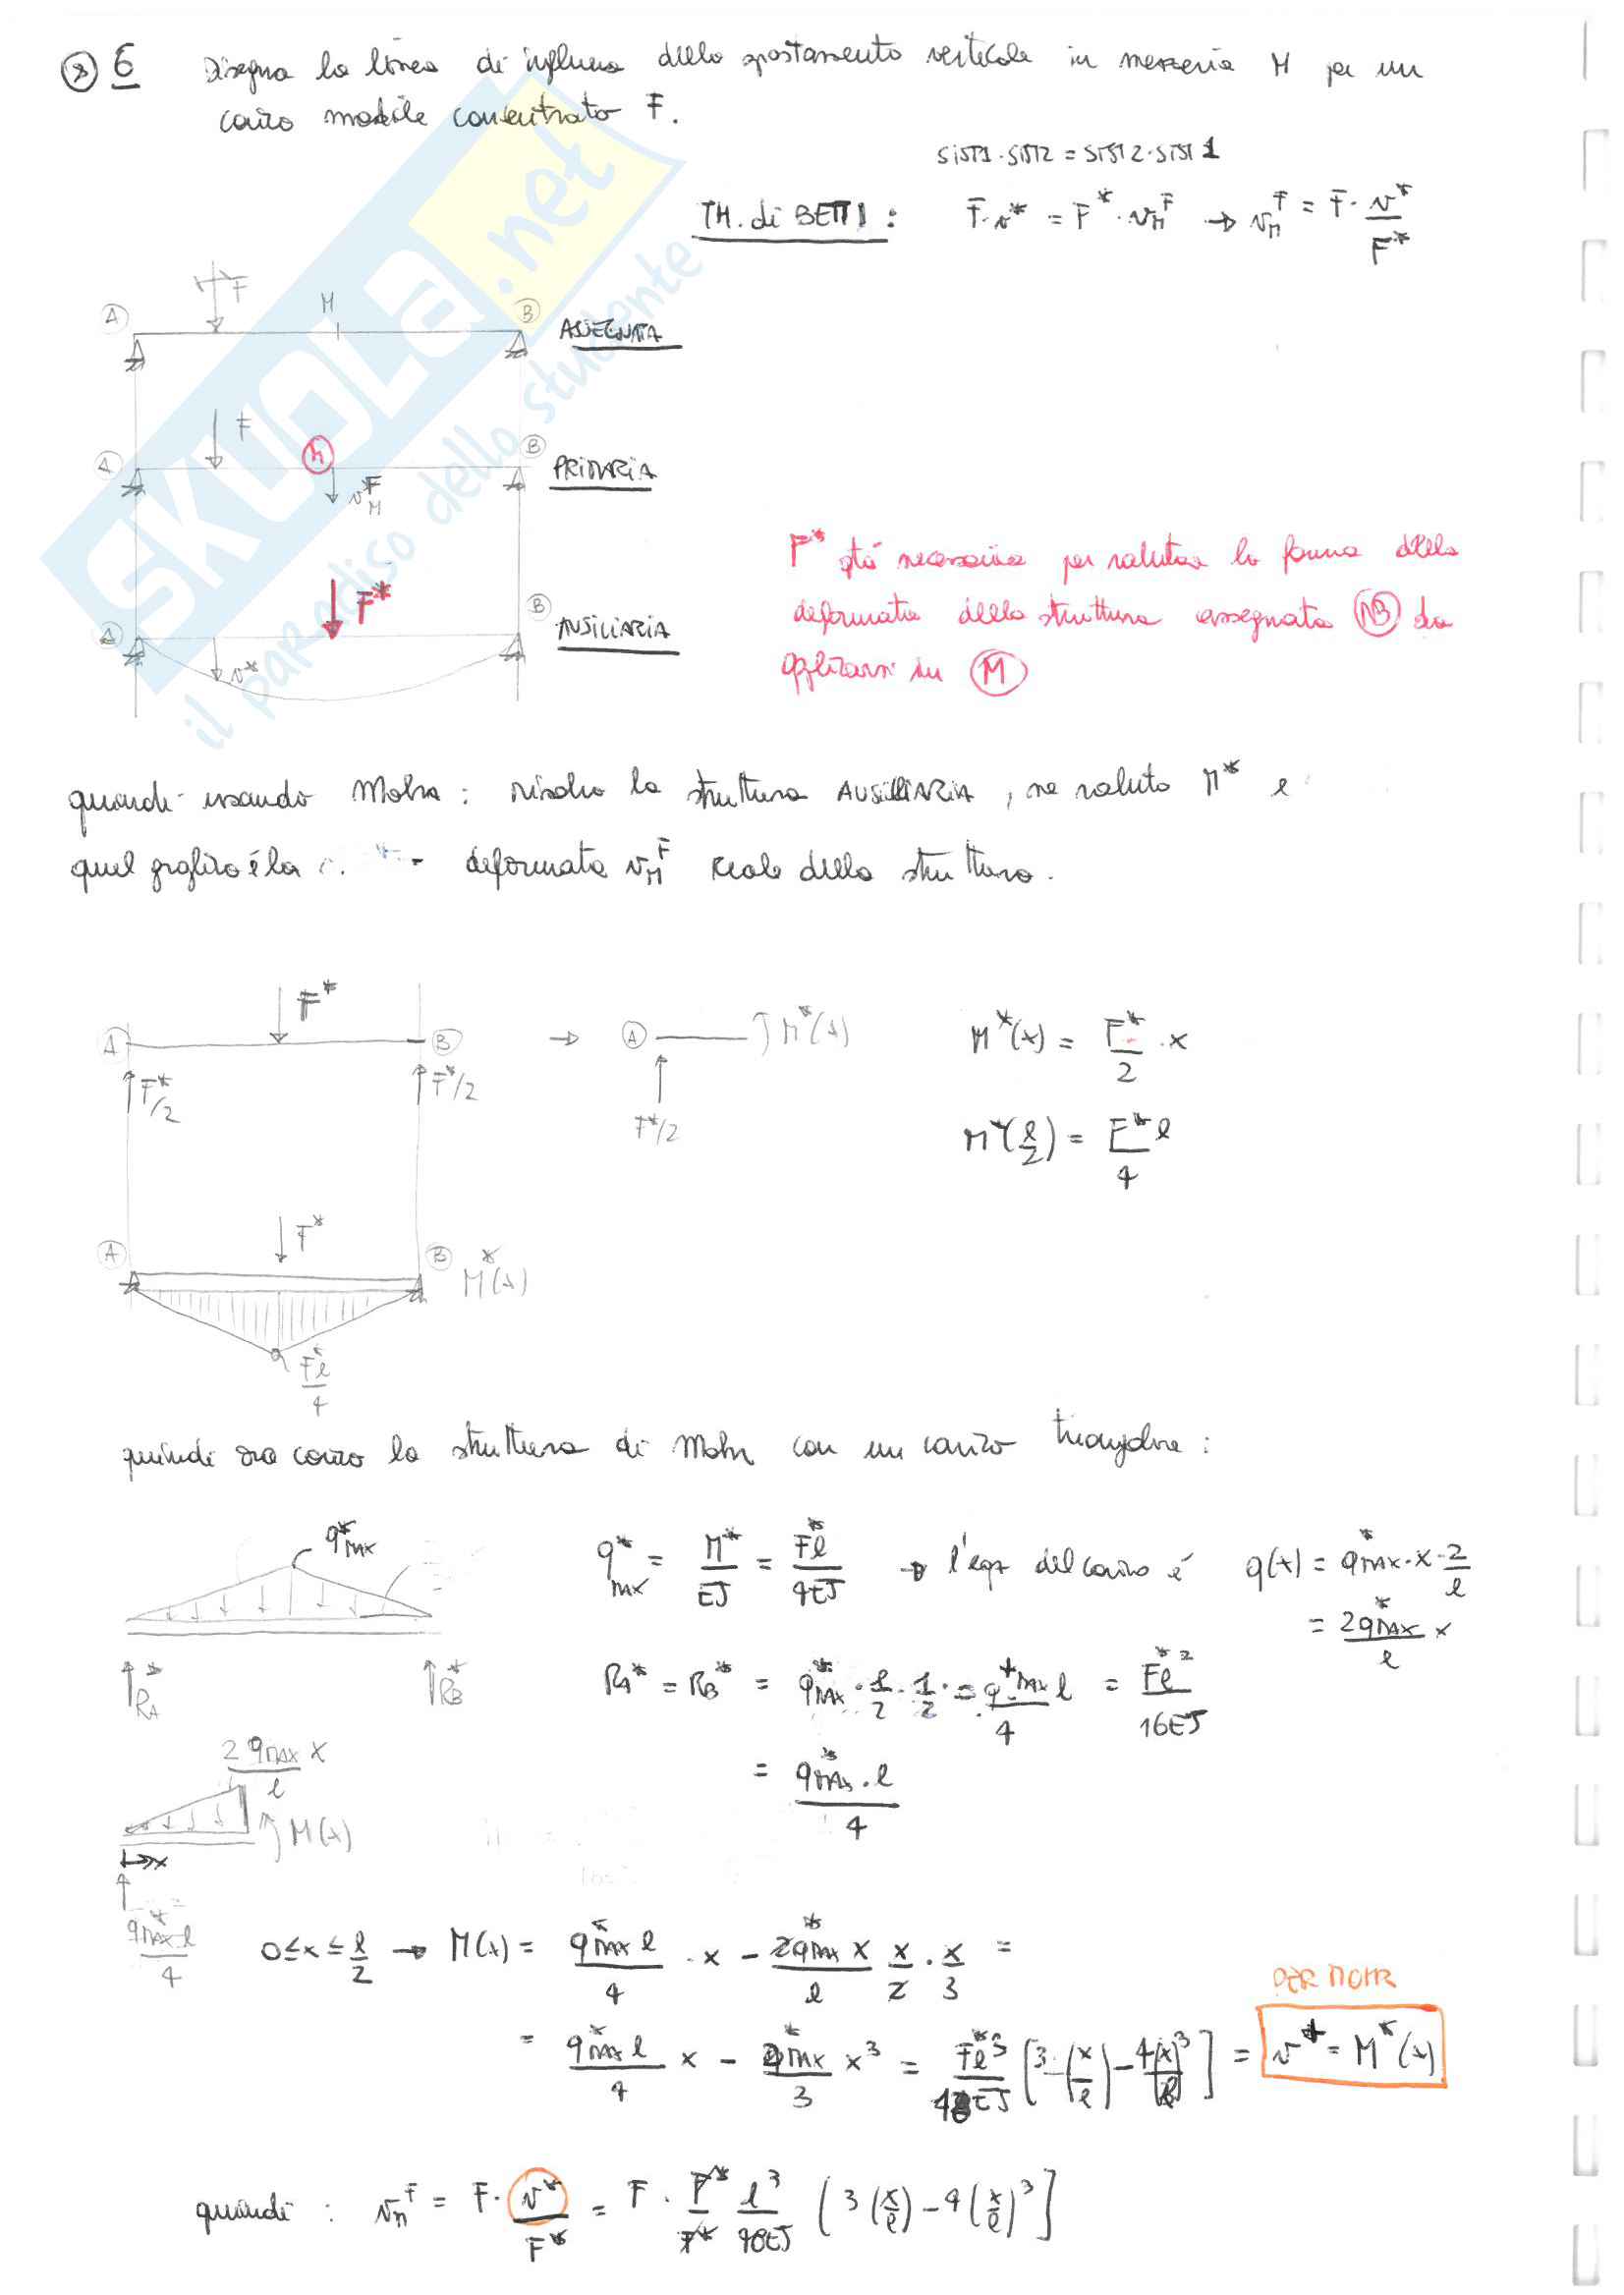 ⑧ 6 Disegna la linea di influenza dello spostamento verticale in mezzeria M per un
carico mobile concentrato F.
SIST1·SIST2 = SIST2·SIST1
TH. di BETTI : F·v* = F*·v_M^F → v_M^F = F· v*/F*
F
A M B ASSEGNATA
F
A M B PRIMARIA
v_M^F
F*
A B AUSILIARIA
v*
F* sta necessaria per valutare la forma della
deformata della struttura assegnata AB da
applicarsi in M
quindi usando Mohr: risolvo la struttura AUSILIARIA, ne valuto M* e
quel grafico è la deformata v_M^F reale della struttura.
F*
A B → A M*(x) M*(x) = F*/2 ·x
F*/2 F*/2 F*/2
M*(l/2) = F*l/4
F*
A B M*(x)
F*l/4
quindi ora carico la struttura di Mohr con un carico triangolare :
q*MAX
q*MAX = M*/EJ = F*l/4EJ → l'eqz del carico è q(x) = q*MAX·x·2/l
= 2q*MAX/l x
R_A* R_B*
R_A* = R_B* = q*MAX · l/2 · 1/2 · = q*MAX l/4 = F*l²/16EJ
= q*MAX·l/4
2qMAX x/l
M(x)
x
q*MAX l/4
0≤x≤l/2 → M(x) = q*MAX l/4 ·x − 2q*MAX x/l x/2 · x/3 =
= q*MAX l/4 x − q*MAX/3 x³ = F*l³/48EJ [3·(x/l) − 4(x/l)³] = v* = M*(x)
PER MOHR
quindi : v_M^F = F· v*/F* = F · F*/F* l³/48EJ (3(x/l) − 4(x/l)³]
SKUOLA.net
il paradiso dello studente